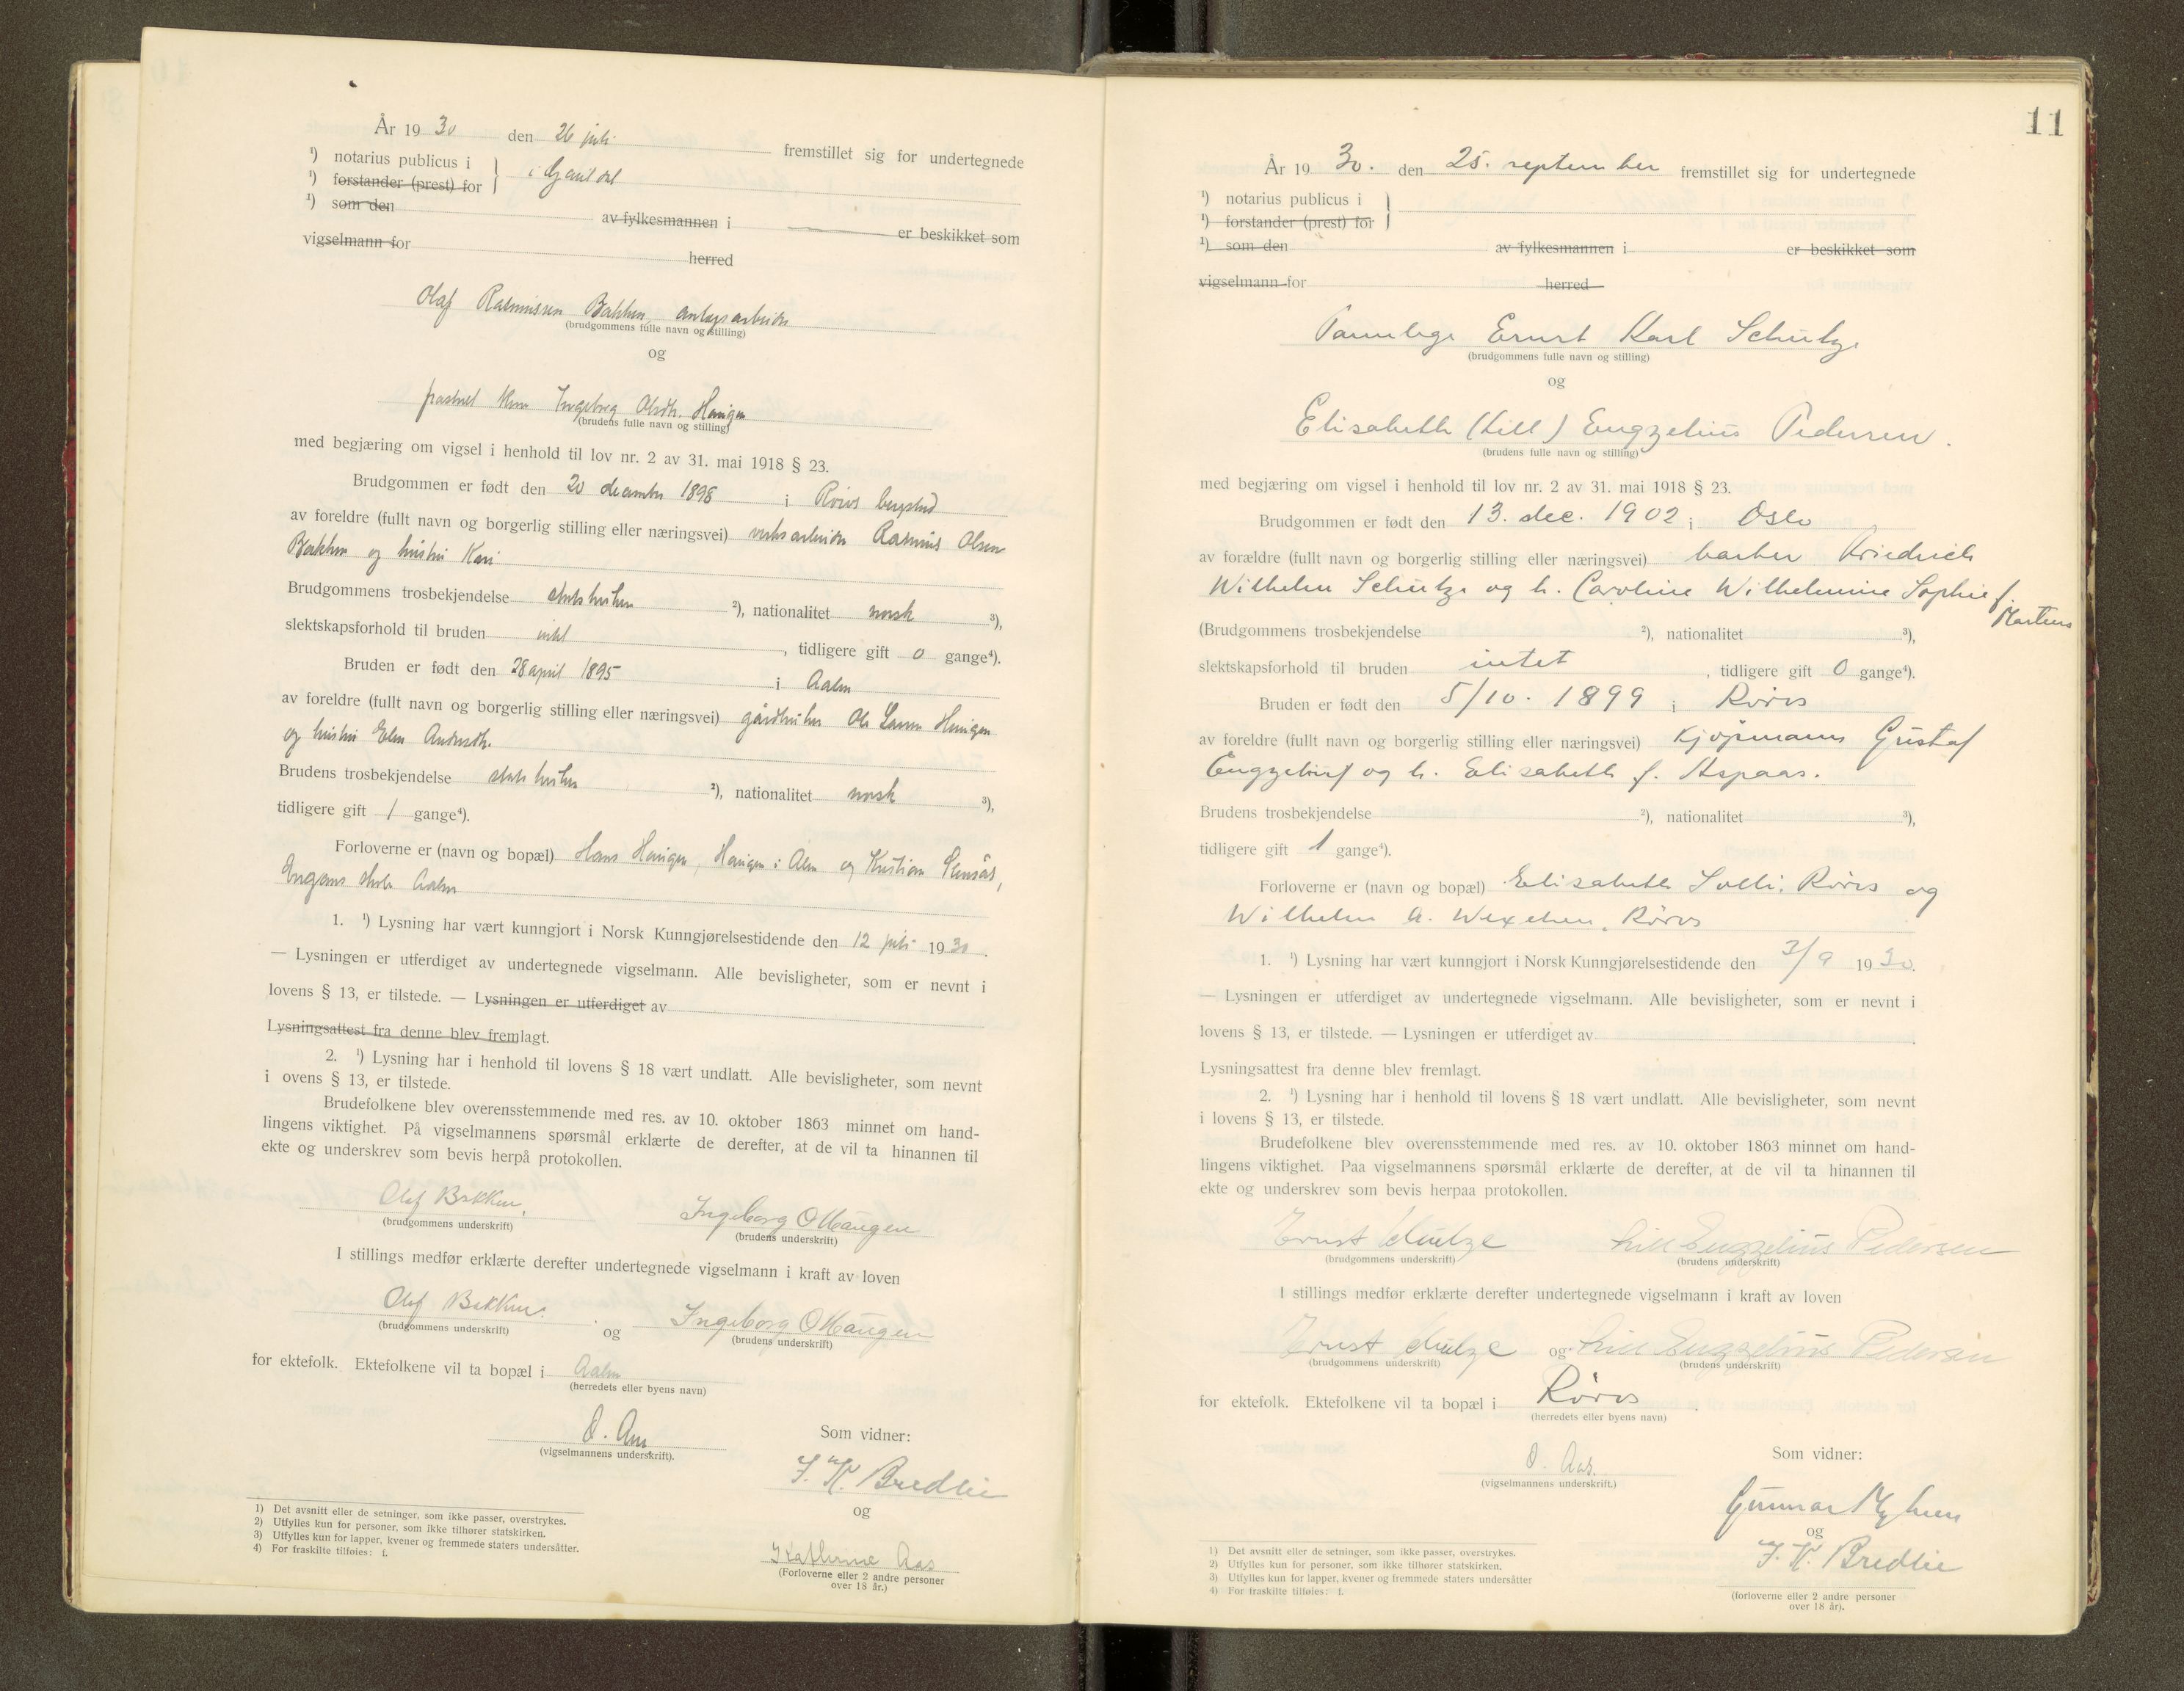 År 19 30 den 26 juli fremstillet sig for undertegnede
¹) notarius publicus i
¹) forstander (prest) for } i Gauldal
¹) som den av fylkesmannen i er beskikket som
vigselmann for herred
Olaf Rasmussen Bakken, anlegsarbeider
(brudgommens fulle navn og stilling)
og
Ingebrig Olsdtr. Haugen
(brudens fulle navn og stilling)
med begjæring om vigsel i henhold til lov nr. 2 av 31. mai 1918 § 23.
Brudgommen er født den 20 december 1898 i Røros bergstad
av foreldre (fullt navn og borgerlig stilling eller næringsvei) verksarbeider Rasmus Olsen
Bakken og hustru Kari
Brudgommens trosbekjendelse statskirken ²), nationalitet norsk ³),
slektskapsforhold til bruden intet, tidligere gift 0 gange⁴).
Bruden er født den 28 april 1895 i Aalen
av foreldre (fullt navn og borgerlig stilling eller næringsvei) gårdbruker Ole Larsen Haugen
og hustru Elen Andersdtr.
Brudens trosbekjendelse statskirken ²), nationalitet norsk ³),
tidligere gift 1 gange⁴).
Forloverne er (navn og bopæl) Hans Haugen, Haugen i Alen og Kristian
Aalen
1. ¹) Lysning har vært kunngjort i Norsk Kunngjørelsestidende den 12 juli 1930.
— Lysningen er utferdiget av undertegnede vigselmann. Alle bevisligheter, som er nevnt i
lovens § 13, er tilstede. — Lysningen er utferdiget av
Lysningsattest fra denne blev fremlagt.
2. ¹) Lysning har i henhold til lovens § 18 vært undlatt. Alle bevisligheter, som nevnt
i ovens § 13, er tilstede.
Brudefolkene blev overensstemmende med res. av 10. oktober 1863 minnet om hand-
lingens viktighet. På vigselmannens spørsmål erklærte de derefter, at de vil ta hinannen til
ekte og underskrev som bevis herpå protokollen.
Olaf Bakken. Ingeborg O Haugen
(brudgommens underskrift) (brudens underskrift)
I stillings medfør erklærte derefter undertegnede vigselmann i kraft av loven
Olaf Bakken. og Ingeborg O Haugen
(brudgommens underskrift) (brudens underskrift)
for ektefolk. Ektefolkene vil ta bopæl i Aalen
(herredets eller byens navn)
O. Aas
(vigselmannens underskrift).
Som vidner:
J. K. Bredlie
og
Kathrine Aas
(Forloverne eller 2 andre personer
over 18 år.)
1) Det avsnitt eller de setninger, som ikke passer, overstrykes.
2) Utfylles kun for personer, som ikke tilhører statskirken.
3) Utfylles kun for lapper, kvener og fremmede staters undersåtter.
4) For fraskilte tilføies: f.
11
År 19 30. den 25. september fremstillet sig for undertegnede
¹) notarius publicus i
¹) forstander (prest) for }
¹) som den av fylkesmannen i er beskikket som
vigselmann for herred
Tannlege Ernst Karl Schutze
(brudgommens fulle navn og stilling)
og
Elisabeth (Lill) Engzelius Pedersen.
(brudens fulle navn og stilling)
med begjæring om vigsel i henhold til lov nr. 2 av 31. mai 1918 § 23.
Brudgommen er født den 13. dec. 1902 i Oslo
av forældre (fullt navn og borgerlig stilling eller næringsvei) barber Friedrich
Wilhelm Schutze og h. Caroline Wilhelmine Sophie f.
Martens
(Brudgommens trosbekjendelse ²), nationalitet ³),
slektskapsforhold til bruden intet, tidligere gift 0 gange⁴).
Bruden er født den 5/10. 1899 i Røros
av foreldre (fullt navn og borgerlig stilling eller næringsvei) kjøpmann Gustaf
Engzelius og h. Elisabeth f. Aspaas.
Brudens trosbekjendelse ²), nationalitet ³),
tidligere gift 1 gange⁴).
Forloverne er (navn og bopæl) Elisabeth Solli, Røros og
Wilhelm A. Wexelsen, Røros
1. ¹) Lysning har vært kunngjort i Norsk Kunngjørelsestidende den 3/9 1930.
— Lysningen er utferdiget av undertegnede vigselmann. Alle bevisligheter, som er nevnt i
lovens § 13, er tilstede. — Lysningen er utferdiget av .
Lysningsattest fra denne blev fremlagt.
2. ¹) Lysning har i henhold til lovens § 18 vært undlatt. Alle bevisligheter, som nevnt
i lovens § 13, er tilstede.
Brudefolkene blev overensstemmende med res. av 10. oktober 1863 minnet om hand-
lingens viktighet. Paa vigselmannens spørsmål erklærte de derefter, at de vil ta hinannen til
ekte og underskrev som bevis herpaa protokollen.
Ernst Schutze Lill Engzelius Pedersen
(brudgommens underskrift) (brudens underskrift)
I stillings medfør erklærte derefter undertegnede vigselmann i kraft av loven
Ernst Schutze og Lill Engzelius Pedersen
(brudgommens underskrift) (brudens underskrift)
for ektefolk. Ektefolkene vil ta bopæl i Røros.
(herredets eller byens navn)
O. Aas.
(vigselmannens underskrift.)
Som vidner:
Gunnar Myhren
og
J. K. Bredlie
(forloverne eller 2 andre personer
over 18 år).
1) Det avsnitt eller de setninger, som ikke passer, overstrykes.
2) Utfylles kun for personer, som ikke tilhører statskirken.
3) Utfylles kun for lapper, kvener og fremmede staters undersåtter
4) For fraskilte tilføies: f.